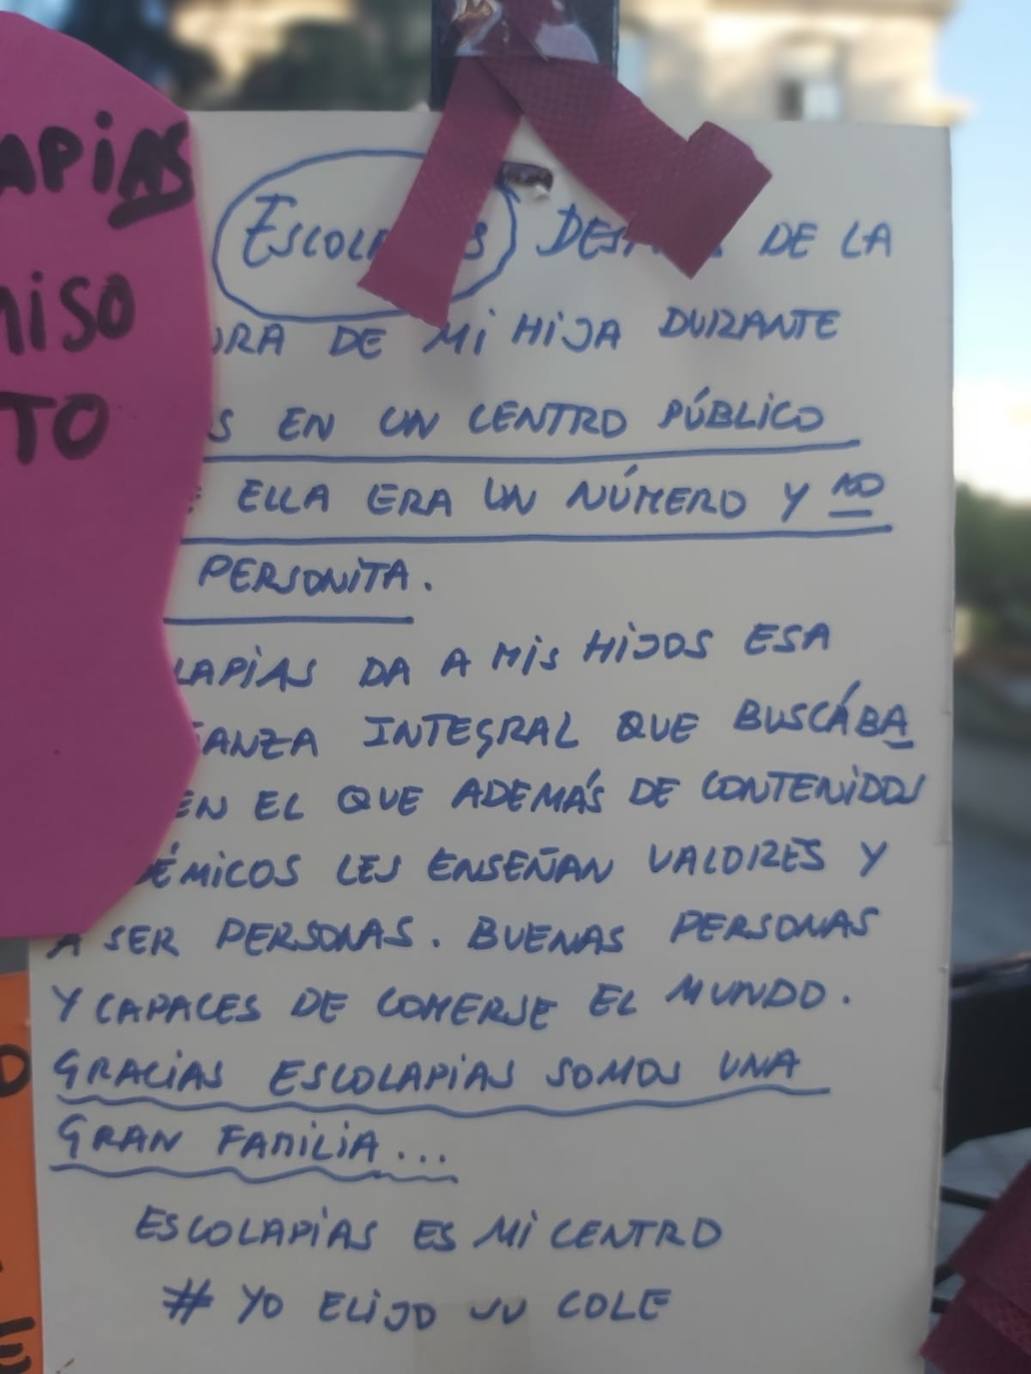 APiAS
MISO
TO
DE LA
DE MI HIJA DURANTE
S EN UN CENTRO PÚBLICO
ELLA ERA UN NÚMERO Y NO
PERSONITA.
LAPIAS DA A MIS HIJOS ESA
ANZA INTEGRAL QUE BUSCÁBA
EN EL QUE ADEMÁS DE CONTENIDOS
ÉMICOS LES ENSEÑAN VALORES Y
A SER PERSONAS. BUENAS PERSONAS
Y CAPACES DE COMERSE EL MUNDO.
GRACIAS ESCOLAPIAS SOMOS UNA
GRAN FAMILIA...
ESCOLAPIAS ES MI CENTRO
# YO ELIJO SU COLE